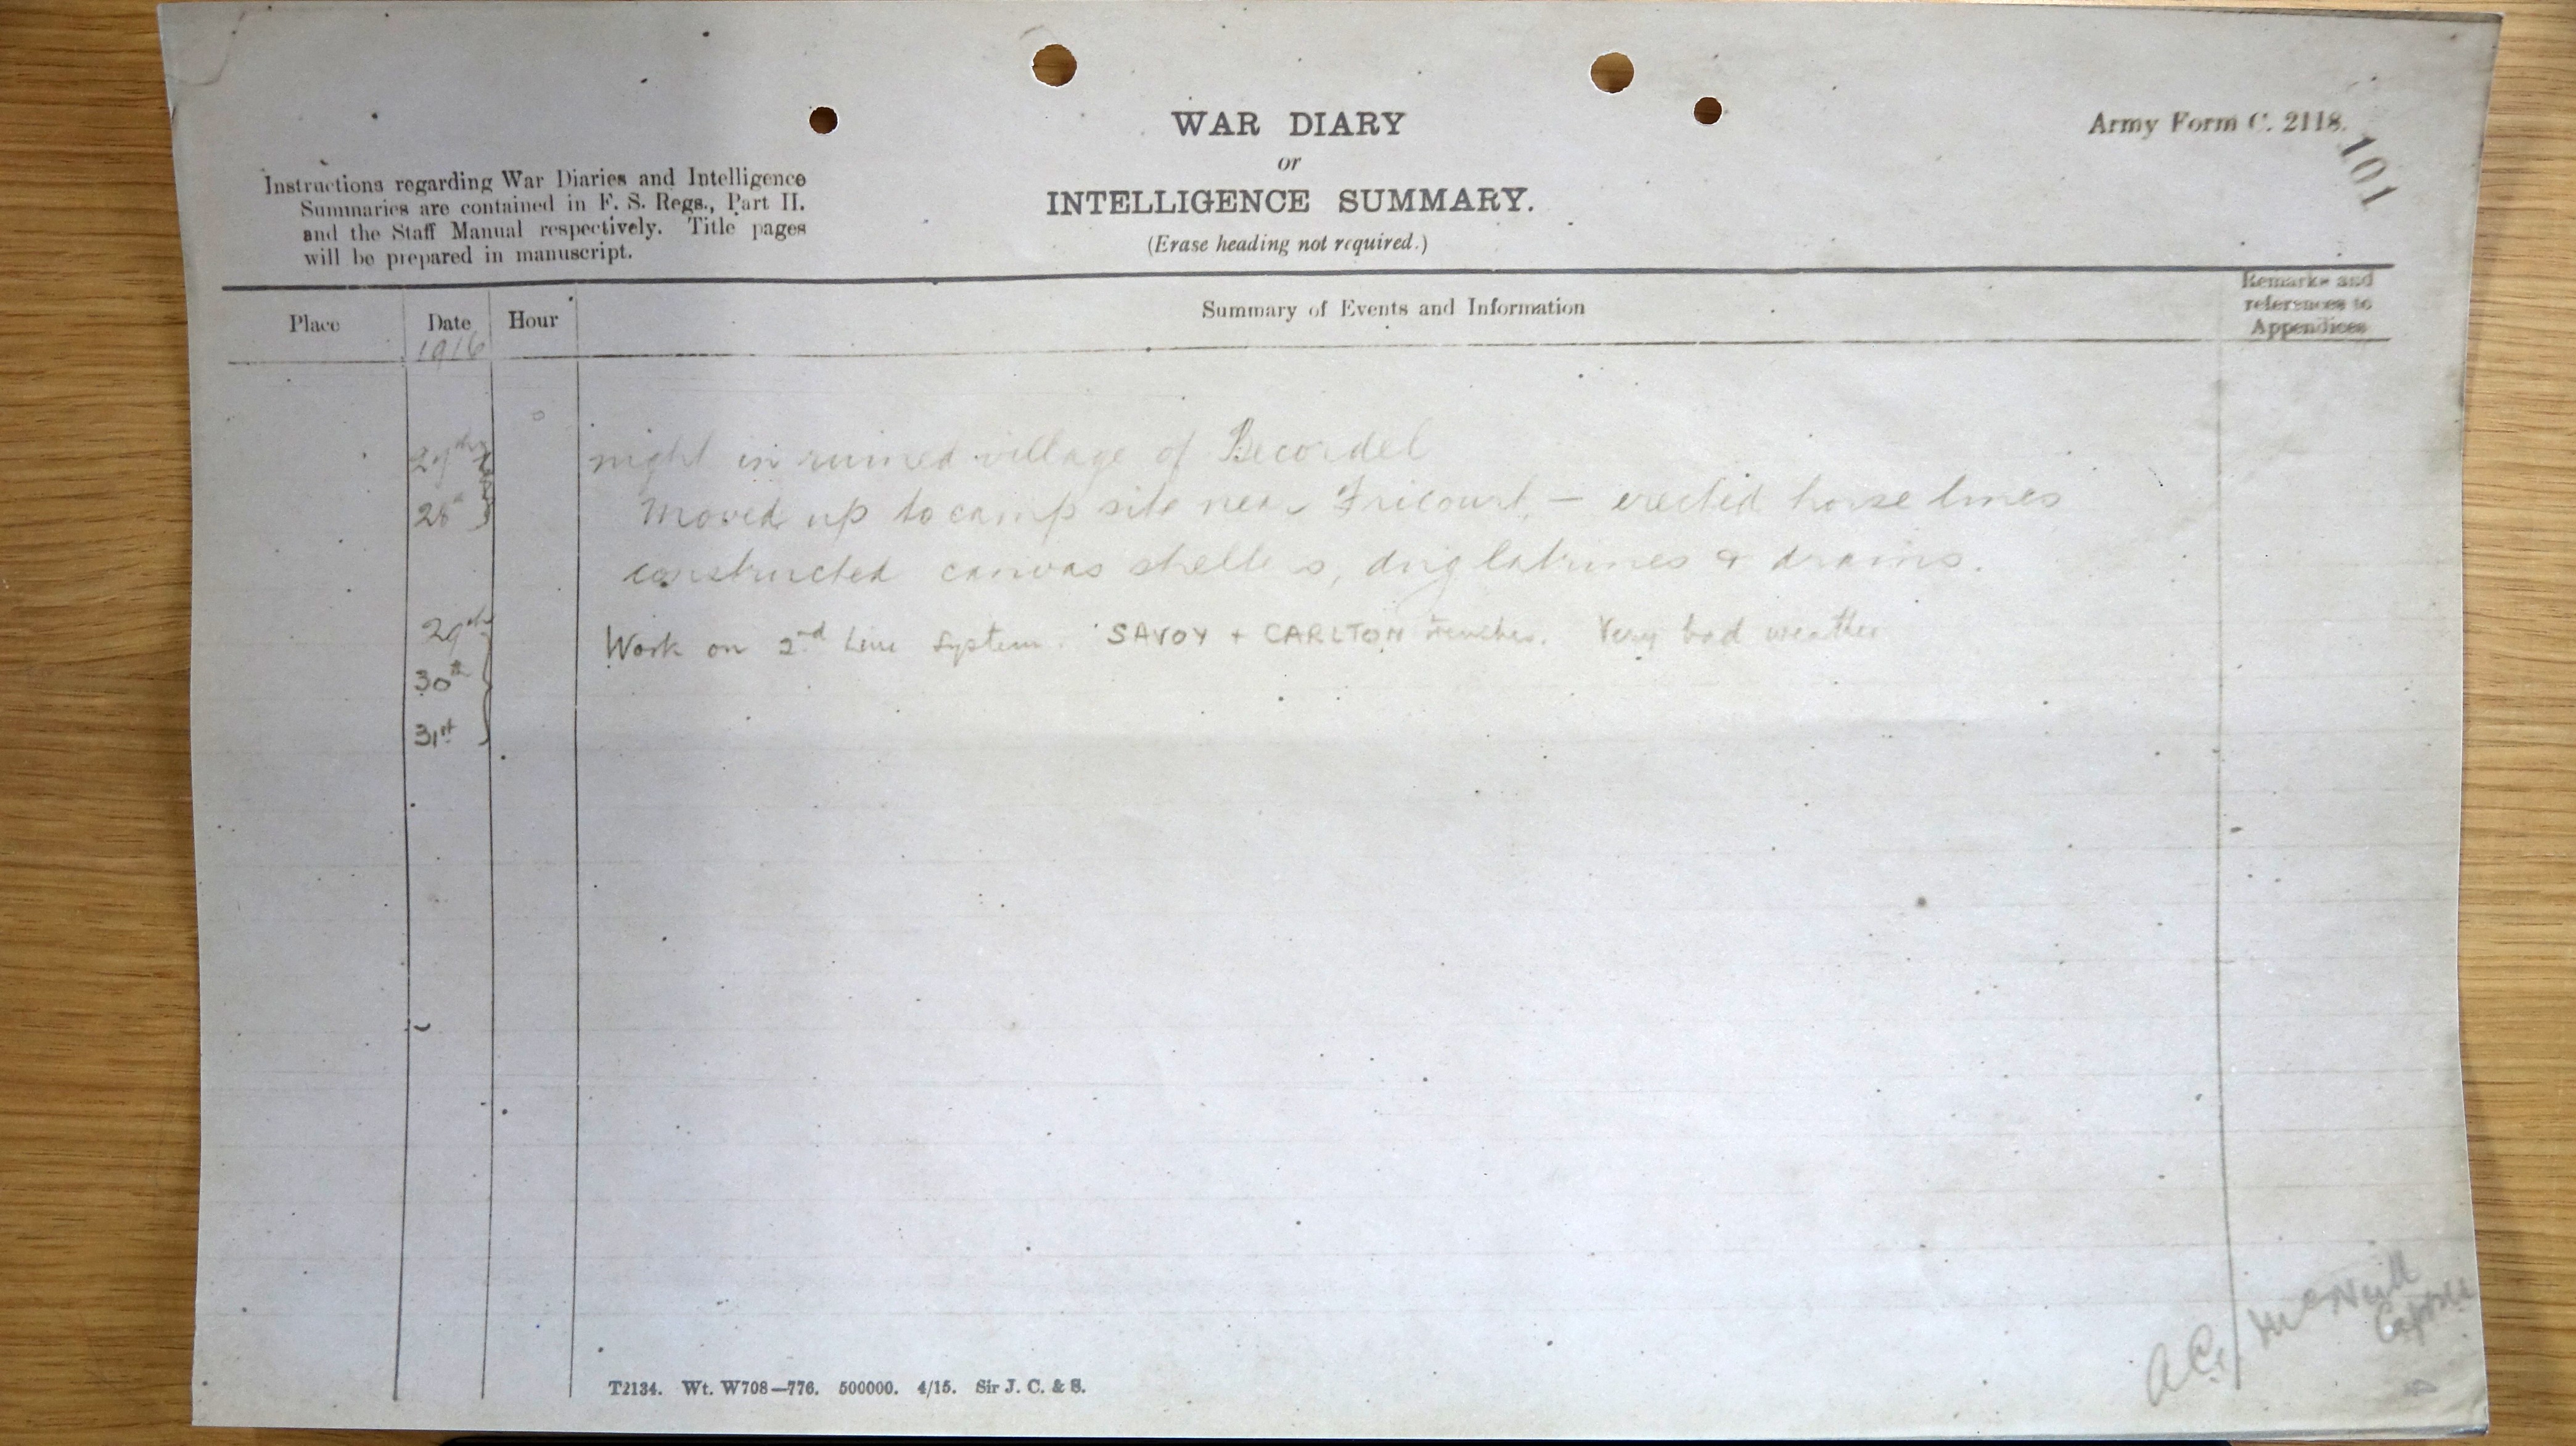 WAR DIARY
or
INTELLIGENCE SUMMARY.
(Erase heading not required.)
Army Form C. 2118.
101
Instructions regarding War Diaries and Intelligence
Summaries are contained in F. S. Regs., Part II.
and the Staff Manual respectively. Title pages
will be prepared in manuscript.
Place
Date
1916
Hour
Summary of Events and Information
Remarks and
references to
Appendices
27th night in ruined village of Becordel
28th Moved up to camp site near Fricourt, — erected horse lines
constructed canvas shelters, dug latrines & drains.
29th Work on 2nd Line System. SAVOY + CARLTON trenches. Very bad weather
30th
31st
McNeill
Capt RE
T2134. Wt. W708—776. 500000. 4/15. Sir J. C. & S.